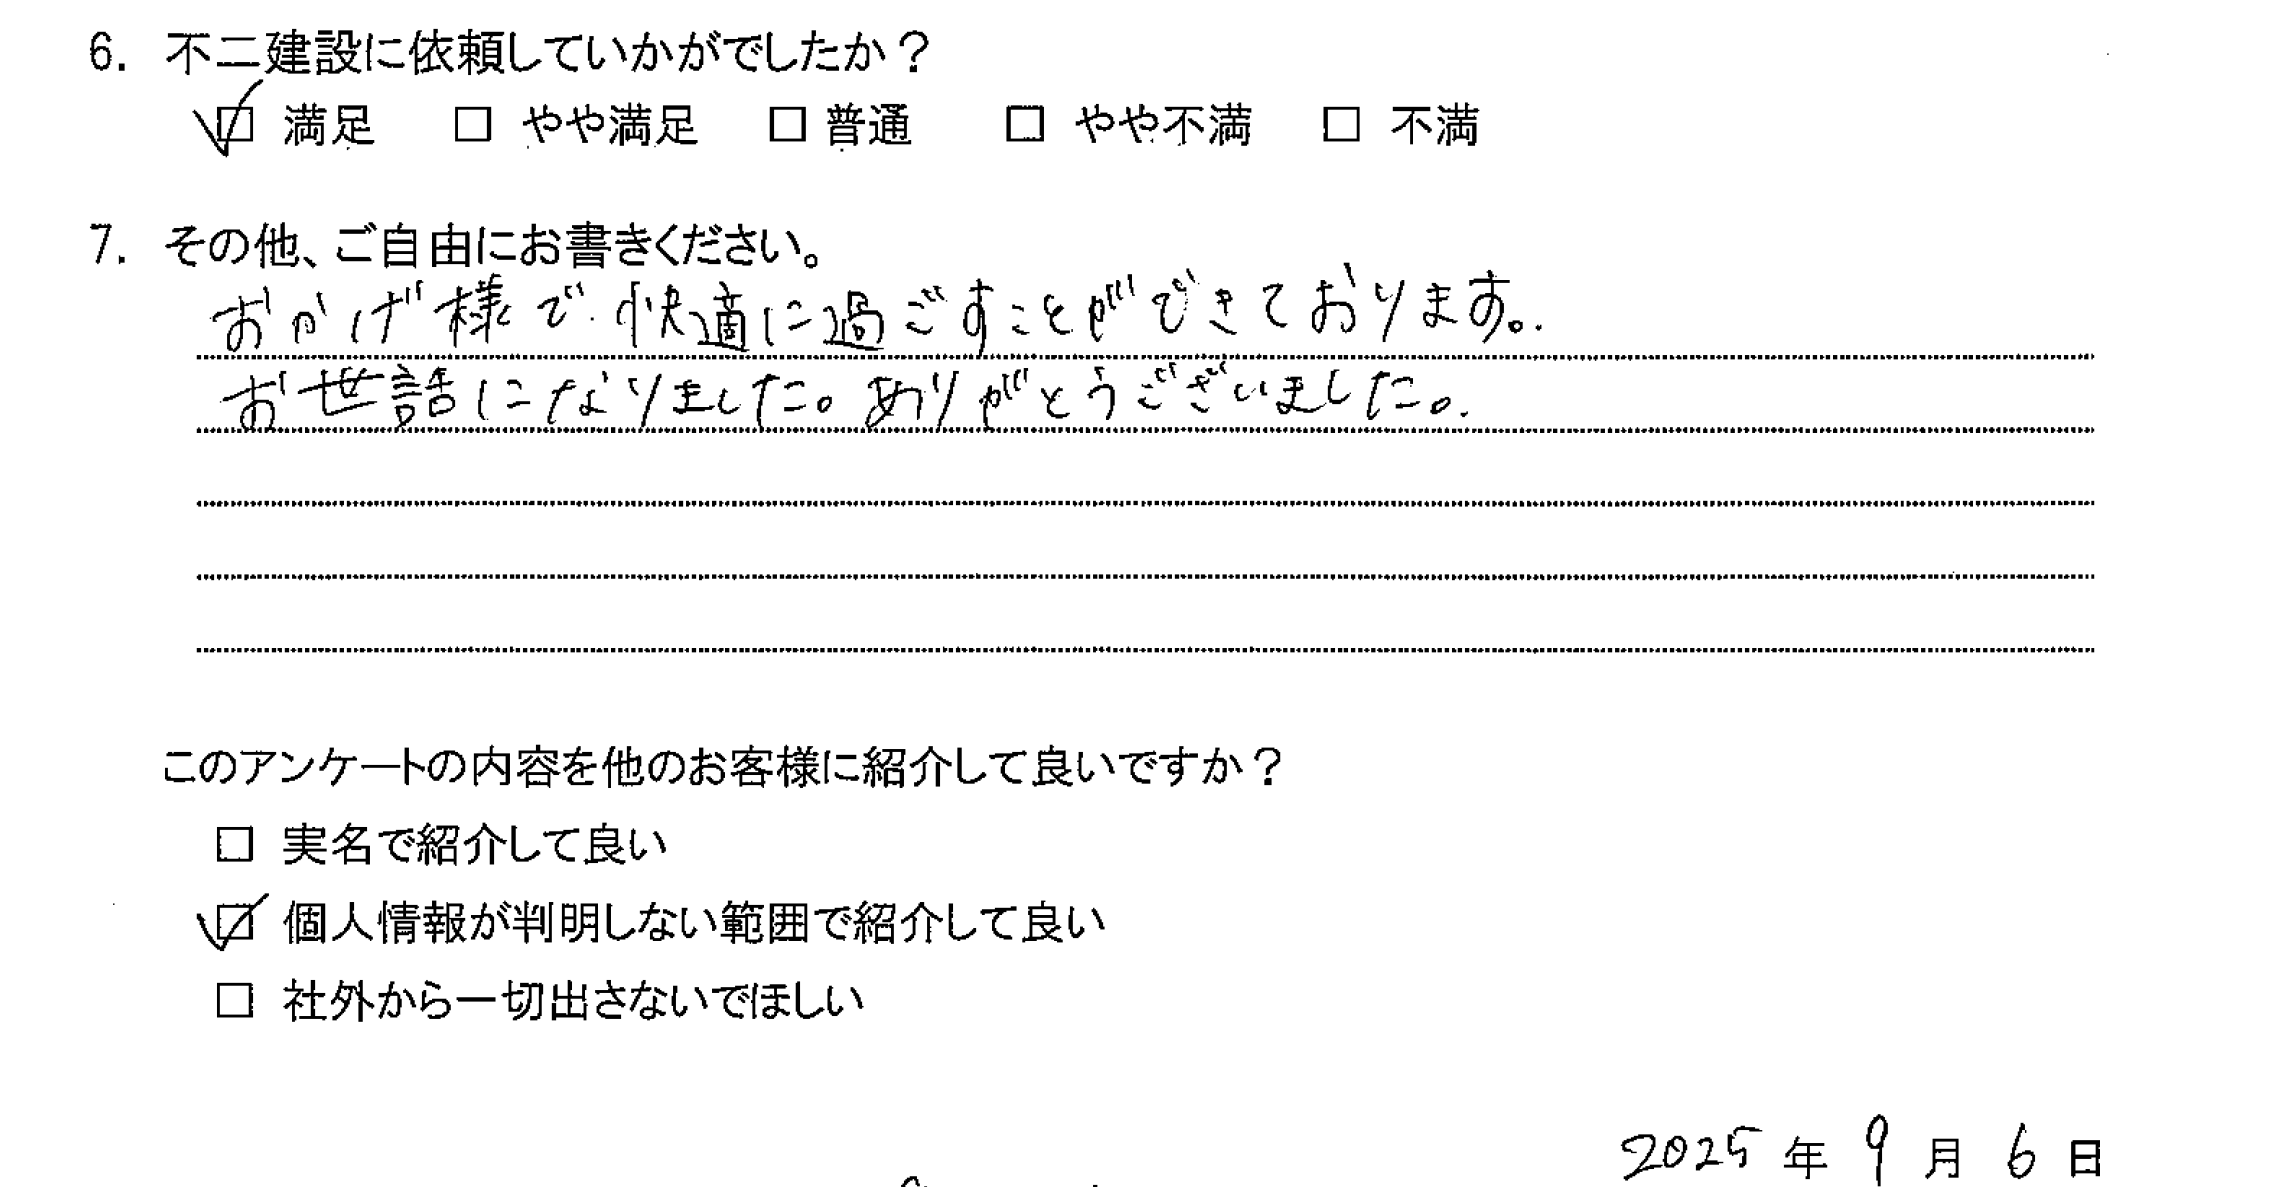 6. 不二建設に依頼していかがでしたか？
☑ 満足 □ やや満足 □ 普通 □ やや不満 □ 不満
7. その他、ご自由にお書きください。
おかげ様で快適に過ごすことができております。
お世話になりました。ありがとうございました。
このアンケートの内容を他のお客様に紹介して良いですか？
□ 実名で紹介して良い
☑ 個人情報が判明しない範囲で紹介して良い
□ 社外から一切出さないでほしい
2025 年 9 月 6 日